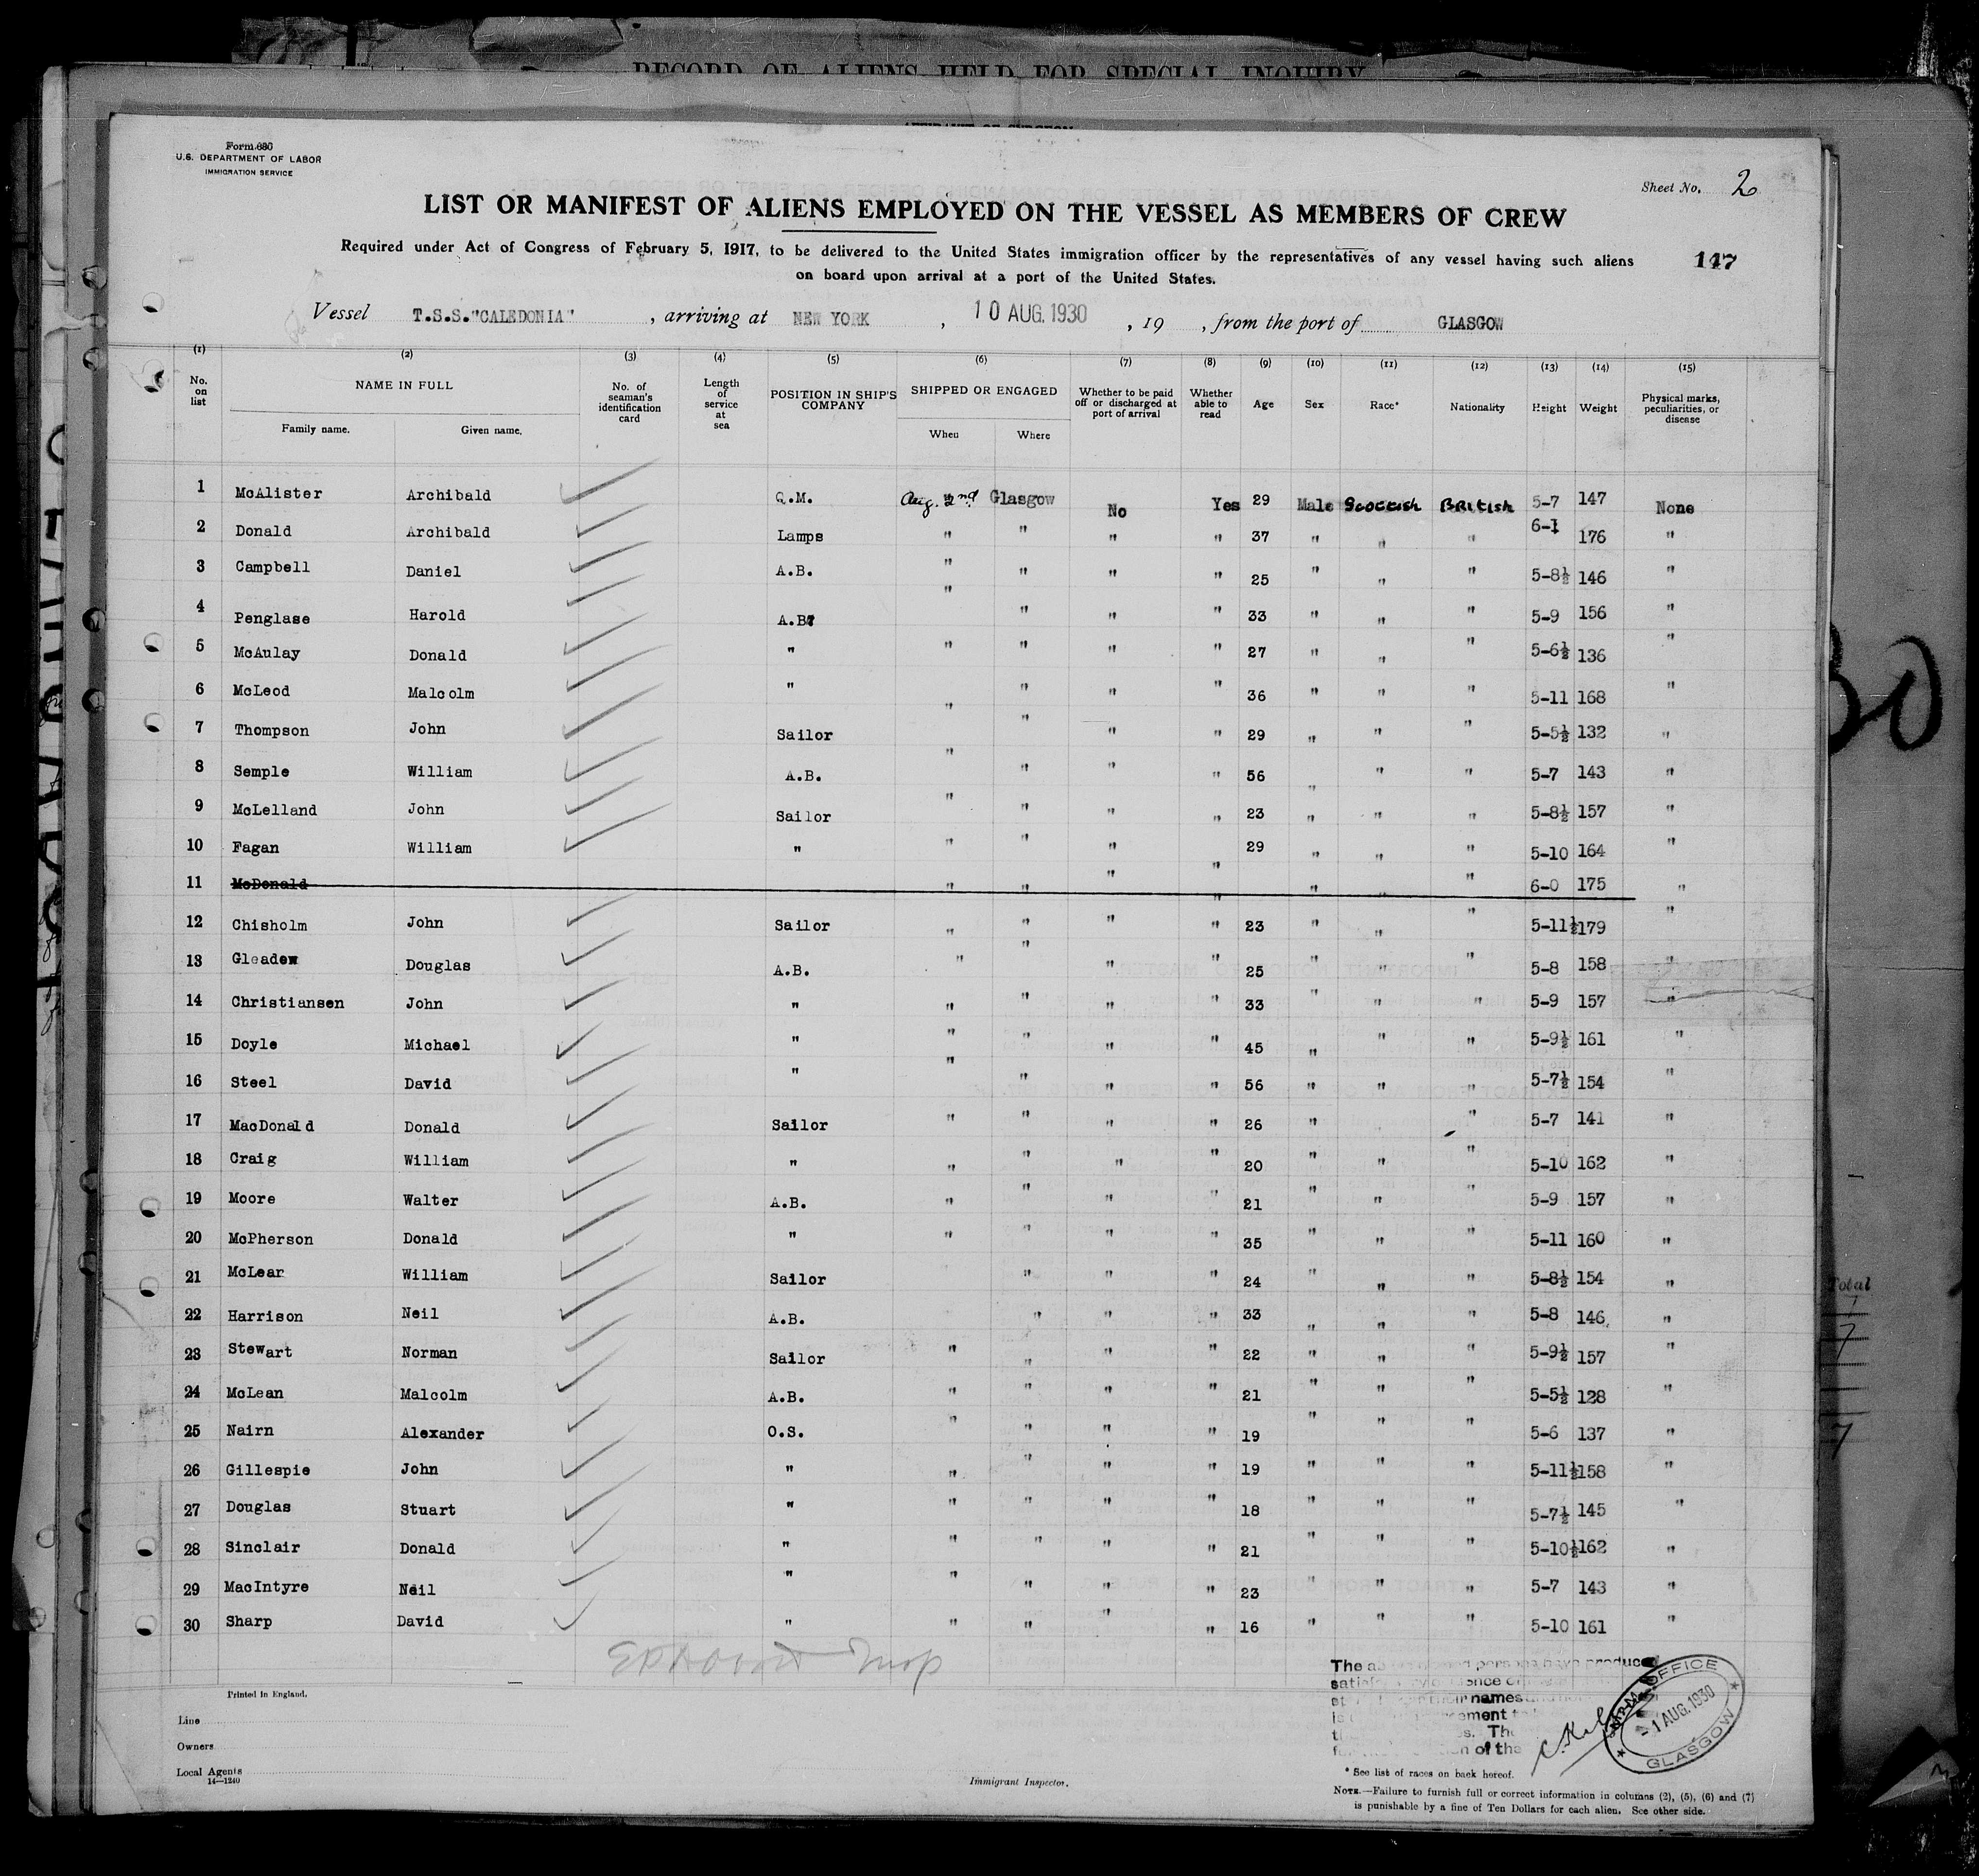 RECORD OF ALIENS HELD FOR SPECIAL INQUIRY
Form 680
U.S. DEPARTMENT OF LABOR
IMMIGRATION SERVICE
Sheet No. 2
LIST OR MANIFEST OF ALIENS EMPLOYED ON THE VESSEL AS MEMBERS OF CREW
Required under Act of Congress of February 5, 1917, to be delivered to the United States immigration officer by the representatives of any vessel having such aliens
on board upon arrival at a port of the United States.
147
Vessel T.S.S."CALEDONIA" , arriving at NEW YORK , 10 AUG. 1930 , 19 , from the port of GLASGOW
(1) (2) (3) (4) (5) (6) (7) (8) (9) (10) (11) (12) (13) (14) (15)
No. on list NAME IN FULL Family name. Given name. No. of seaman's identification card Length of service at sea POSITION IN SHIP'S COMPANY SHIPPED OR ENGAGED When Where Whether to be paid off or discharged at port of arrival Whether able to read Age Sex Race* Nationality Height Weight Physical marks, peculiarities, or disease
1 McAlister Archibald Q.M. Aug. 2nd Glasgow No Yes 29 Male Scottish British 5-7 147 None
2 Donald Archibald Lamps " " " " 37 " " " 6-1 176 "
3 Campbell Daniel A.B. " " " " 25 " " " 5-8½ 146 "
4 Penglase Harold A.B. " " " " 33 " " " 5-9 156 "
5 McAulay Donald " " " " " 27 " " " 5-6½ 136 "
6 McLeod Malcolm " " " " " 36 " " " 5-11 168 "
7 Thompson John Sailor " " " " 29 " " " 5-5½ 132 "
8 Semple William A.B. " " " " 56 " " " 5-7 143 "
9 McLelland John Sailor " " " " 23 " " " 5-8½ 157 "
10 Fagan William " " " " " 29 " " " 5-10 164 "
11 McDonald " " " " " " " 6-0 175 "
12 Chisholm John Sailor " " " " 23 " " " 5-11½ 179 "
13 Gleadew Douglas A.B. " " " " 25 " " " 5-8 158 "
14 Christiansen John " " " " " 33 " " " 5-9 157 "
15 Doyle Michael " " " " " 45 " " " 5-9½ 161 "
16 Steel David " " " " " 56 " " " 5-7½ 154 "
17 MacDonald Donald Sailor " " " " 26 " " 5-7 141 "
18 Craig William " " " " " 20 " " " 5-10 162 "
19 Moore Walter A.B. " " " " 21 " " " 5-9 157 "
20 McPherson Donald " " " " " 35 " " " 5-11 160 "
21 McLear William Sailor " " " 24 " " " 5-8½ 154 "
22 Harrison Neil A.B. " " " 33 " " " 5-8 146 "
23 Stewart Norman Sailor " " " " 22 " " " 5-9½ 157 "
24 McLean Malcolm A.B. " " " " 21 " " " 5-5½ 128 "
25 Nairn Alexander O.S. " " " " 19 " " " 5-6 137 "
26 Gillespie John " " " " " 19 " " " 5-11½ 158 "
27 Douglas Stuart " " " " " 18 " " " 5-7½ 145 "
28 Sinclair Donald " " " " " 21 " " " 5-10½ 162 "
29 MacIntyre Neil " " " " " 23 " " " 5-7 143 "
30 Sharp David " " " " " 16 " " " 5-10 161 "
Printed in England.
Line
Owners
Local Agents
14—1240
Immigrant Inspector.
names
of the
OFFICE
-1 AUG. 1930
GLASGOW
* See list of races on back hereof.
NOTE.—Failure to furnish full or correct information in columns (2), (5), (6) and (7)
is punishable by a fine of Ten Dollars for each alien. See other side.
Total
7
7